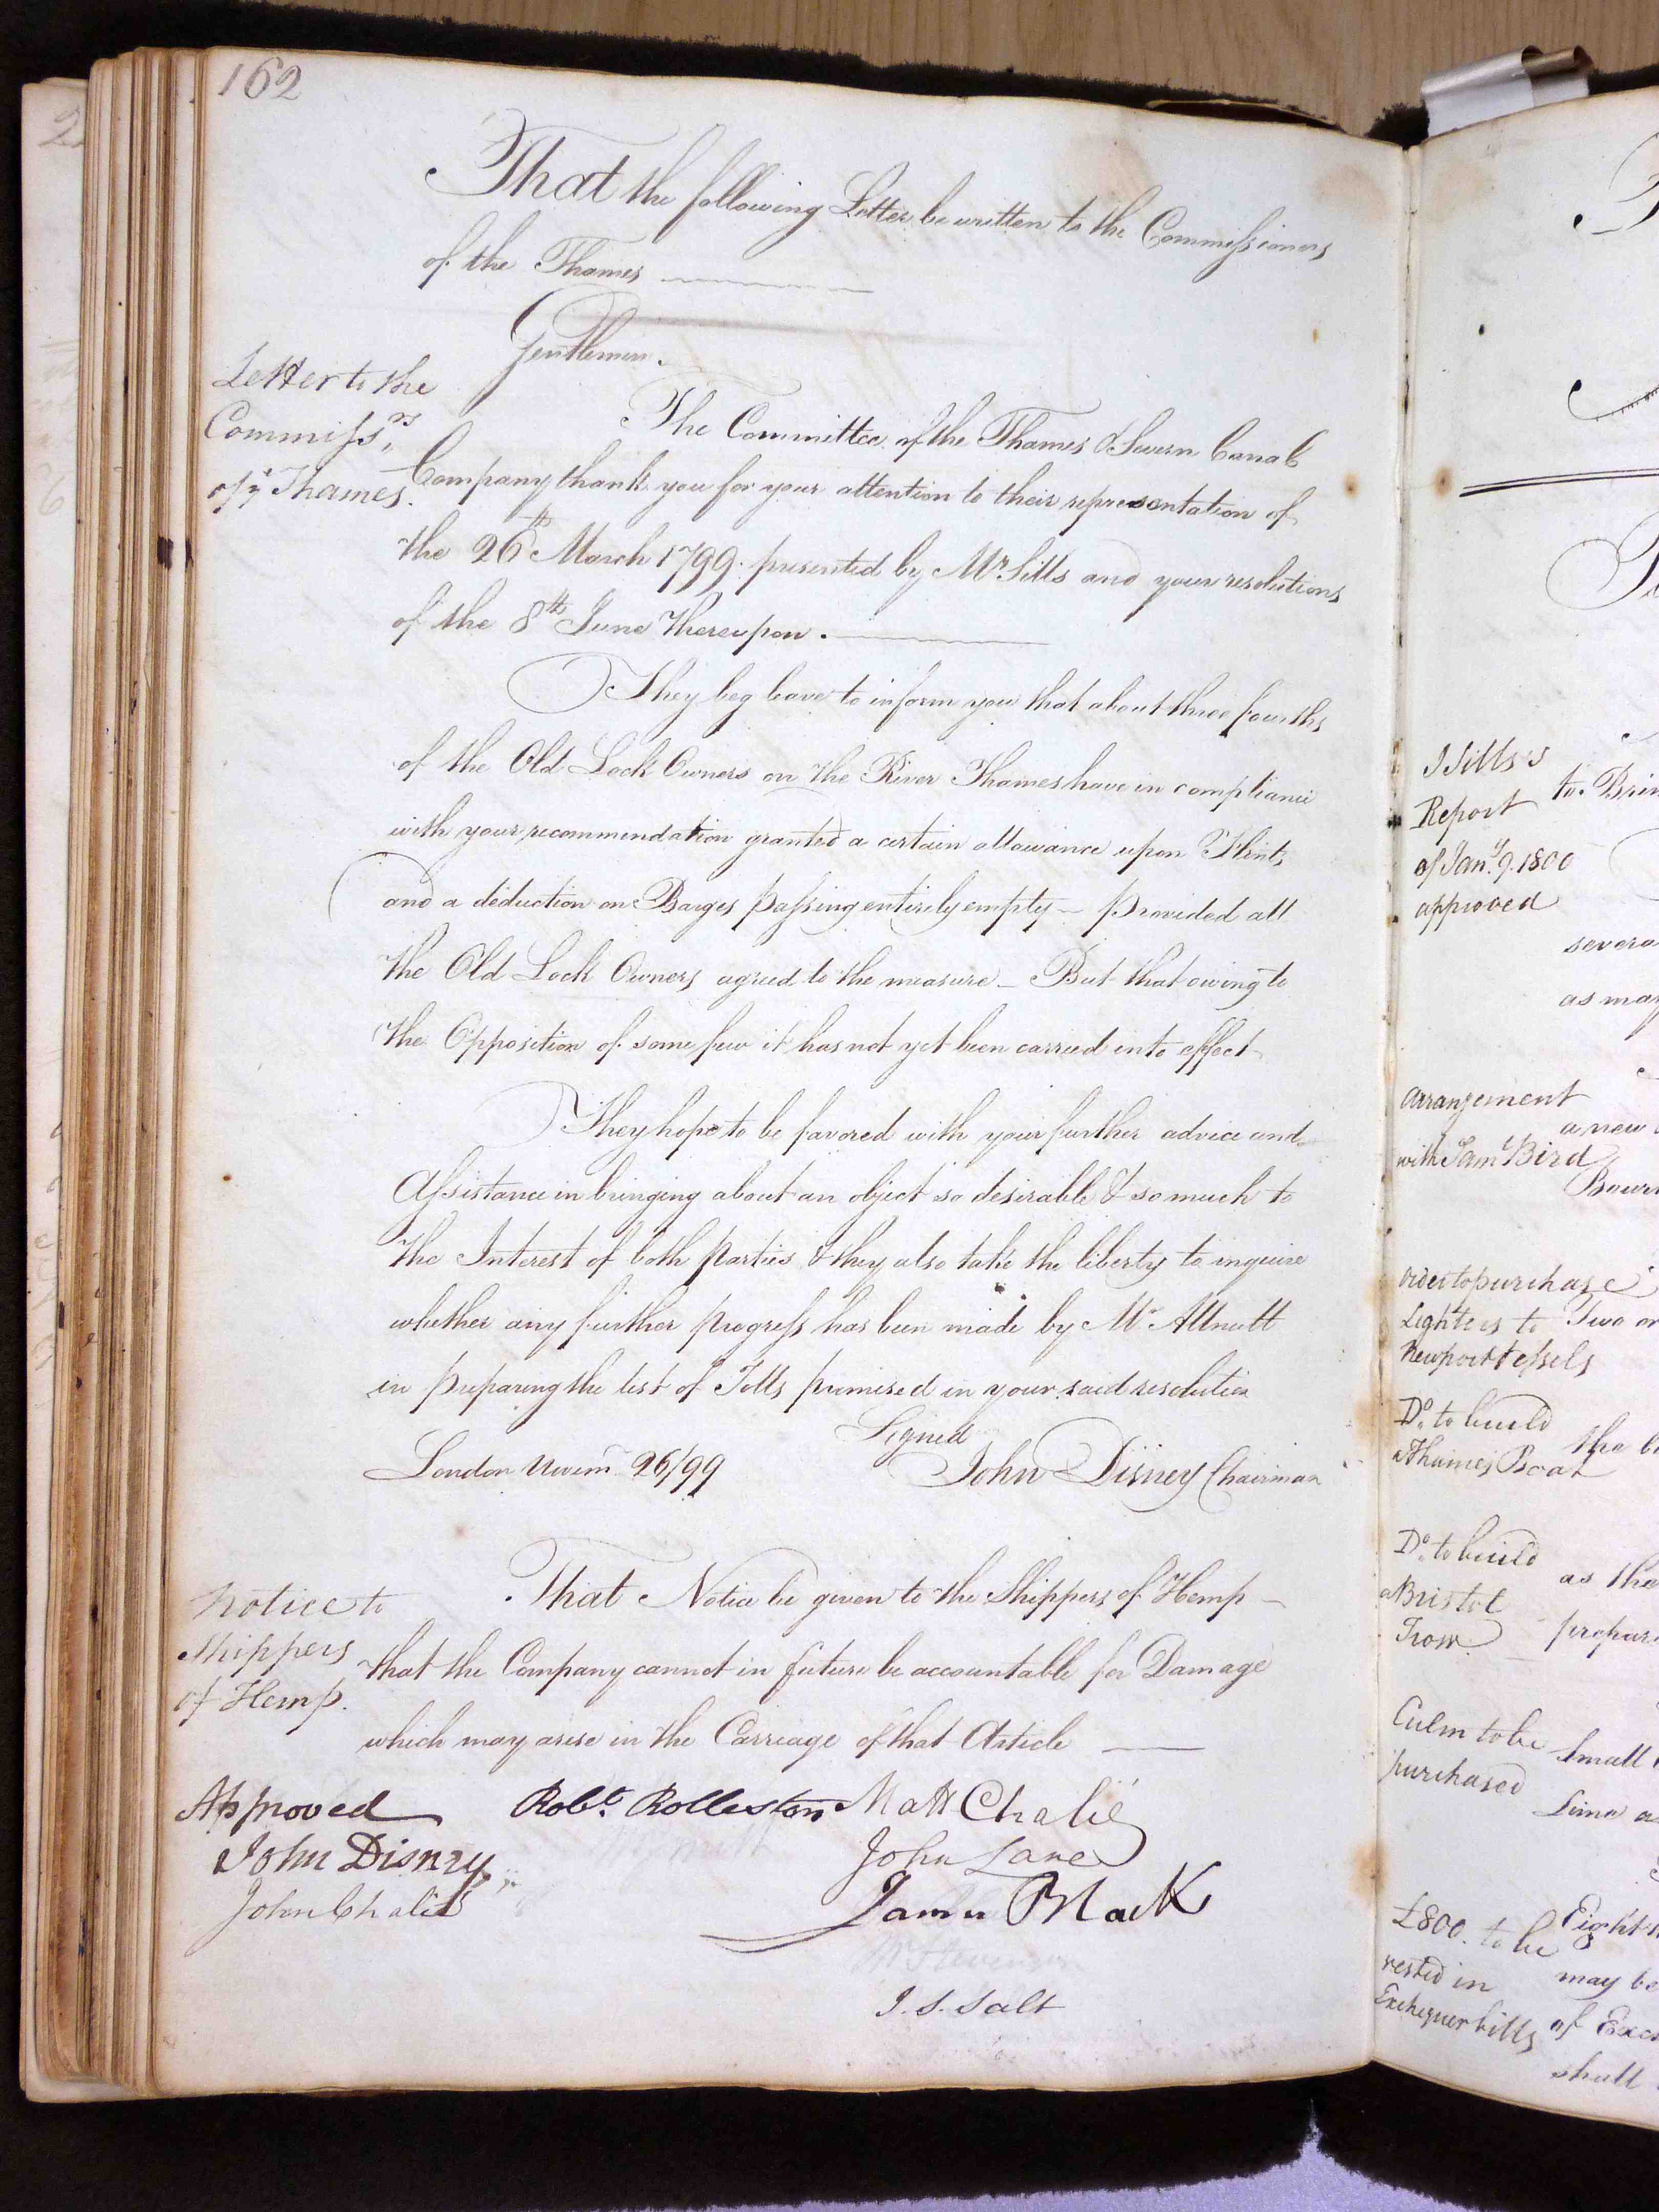 162
That the following Letter be written to the Commissioners
of the Thames
Gentlemen.
Letter to the
Commiss.rs
of ye Thames.
The Committee of the Thames & Severn Canal
Company thank you for your attention to their representation of
the 26th March 1799. presented by Mr Sills and your resolutions
of the 8th June thereupon.
They beg leave to inform you that about three fourths
of the Old Lock Owners on the River Thames have in compliance
with your recommendation granted a certain allowance upon Flints
and a deduction on Barges passing entirely empty — provided all
the Old Lock Owners agreed to the measure — But that owing to
the Opposition of some few it has not yet been carried into effect
They hope to be favored with your further advice and
Assistance in bringing about an object so desirable & so much to
the Interest of both parties & they also take the liberty to inquire
whether any further progress has been made by Mr Allnutt
in preparing the list of Tolls promised in your said resolution
Signed
London 26/99
John Disney Chairman
Notice to
Shippers
of Hemp.
That Notice be given to the Shippers of Hemp —
that the Company cannot in future be accountable for Damage
which may arise in the Carriage of that Article
Approved
Robt. Rolleston
Matt Chalié
John Disney
John Lane
John Chalié
James Black
J. S. Salt
J Sills's
Report
of Jany. 9. 1800
approved
to Brin
severa
as may
arrangement
with Saml Bird
a new
Order to purchase
Lighters to
Newport Vessels
Two or
Do. to build
a Thames Boat
the b
Do. to build
a Bristol
Trow
as tha
prepar
Culm to be
purchased
Small
Lime a
£800. to be
vested in
Exchequer bills
Eight
may be
of Exc
shall